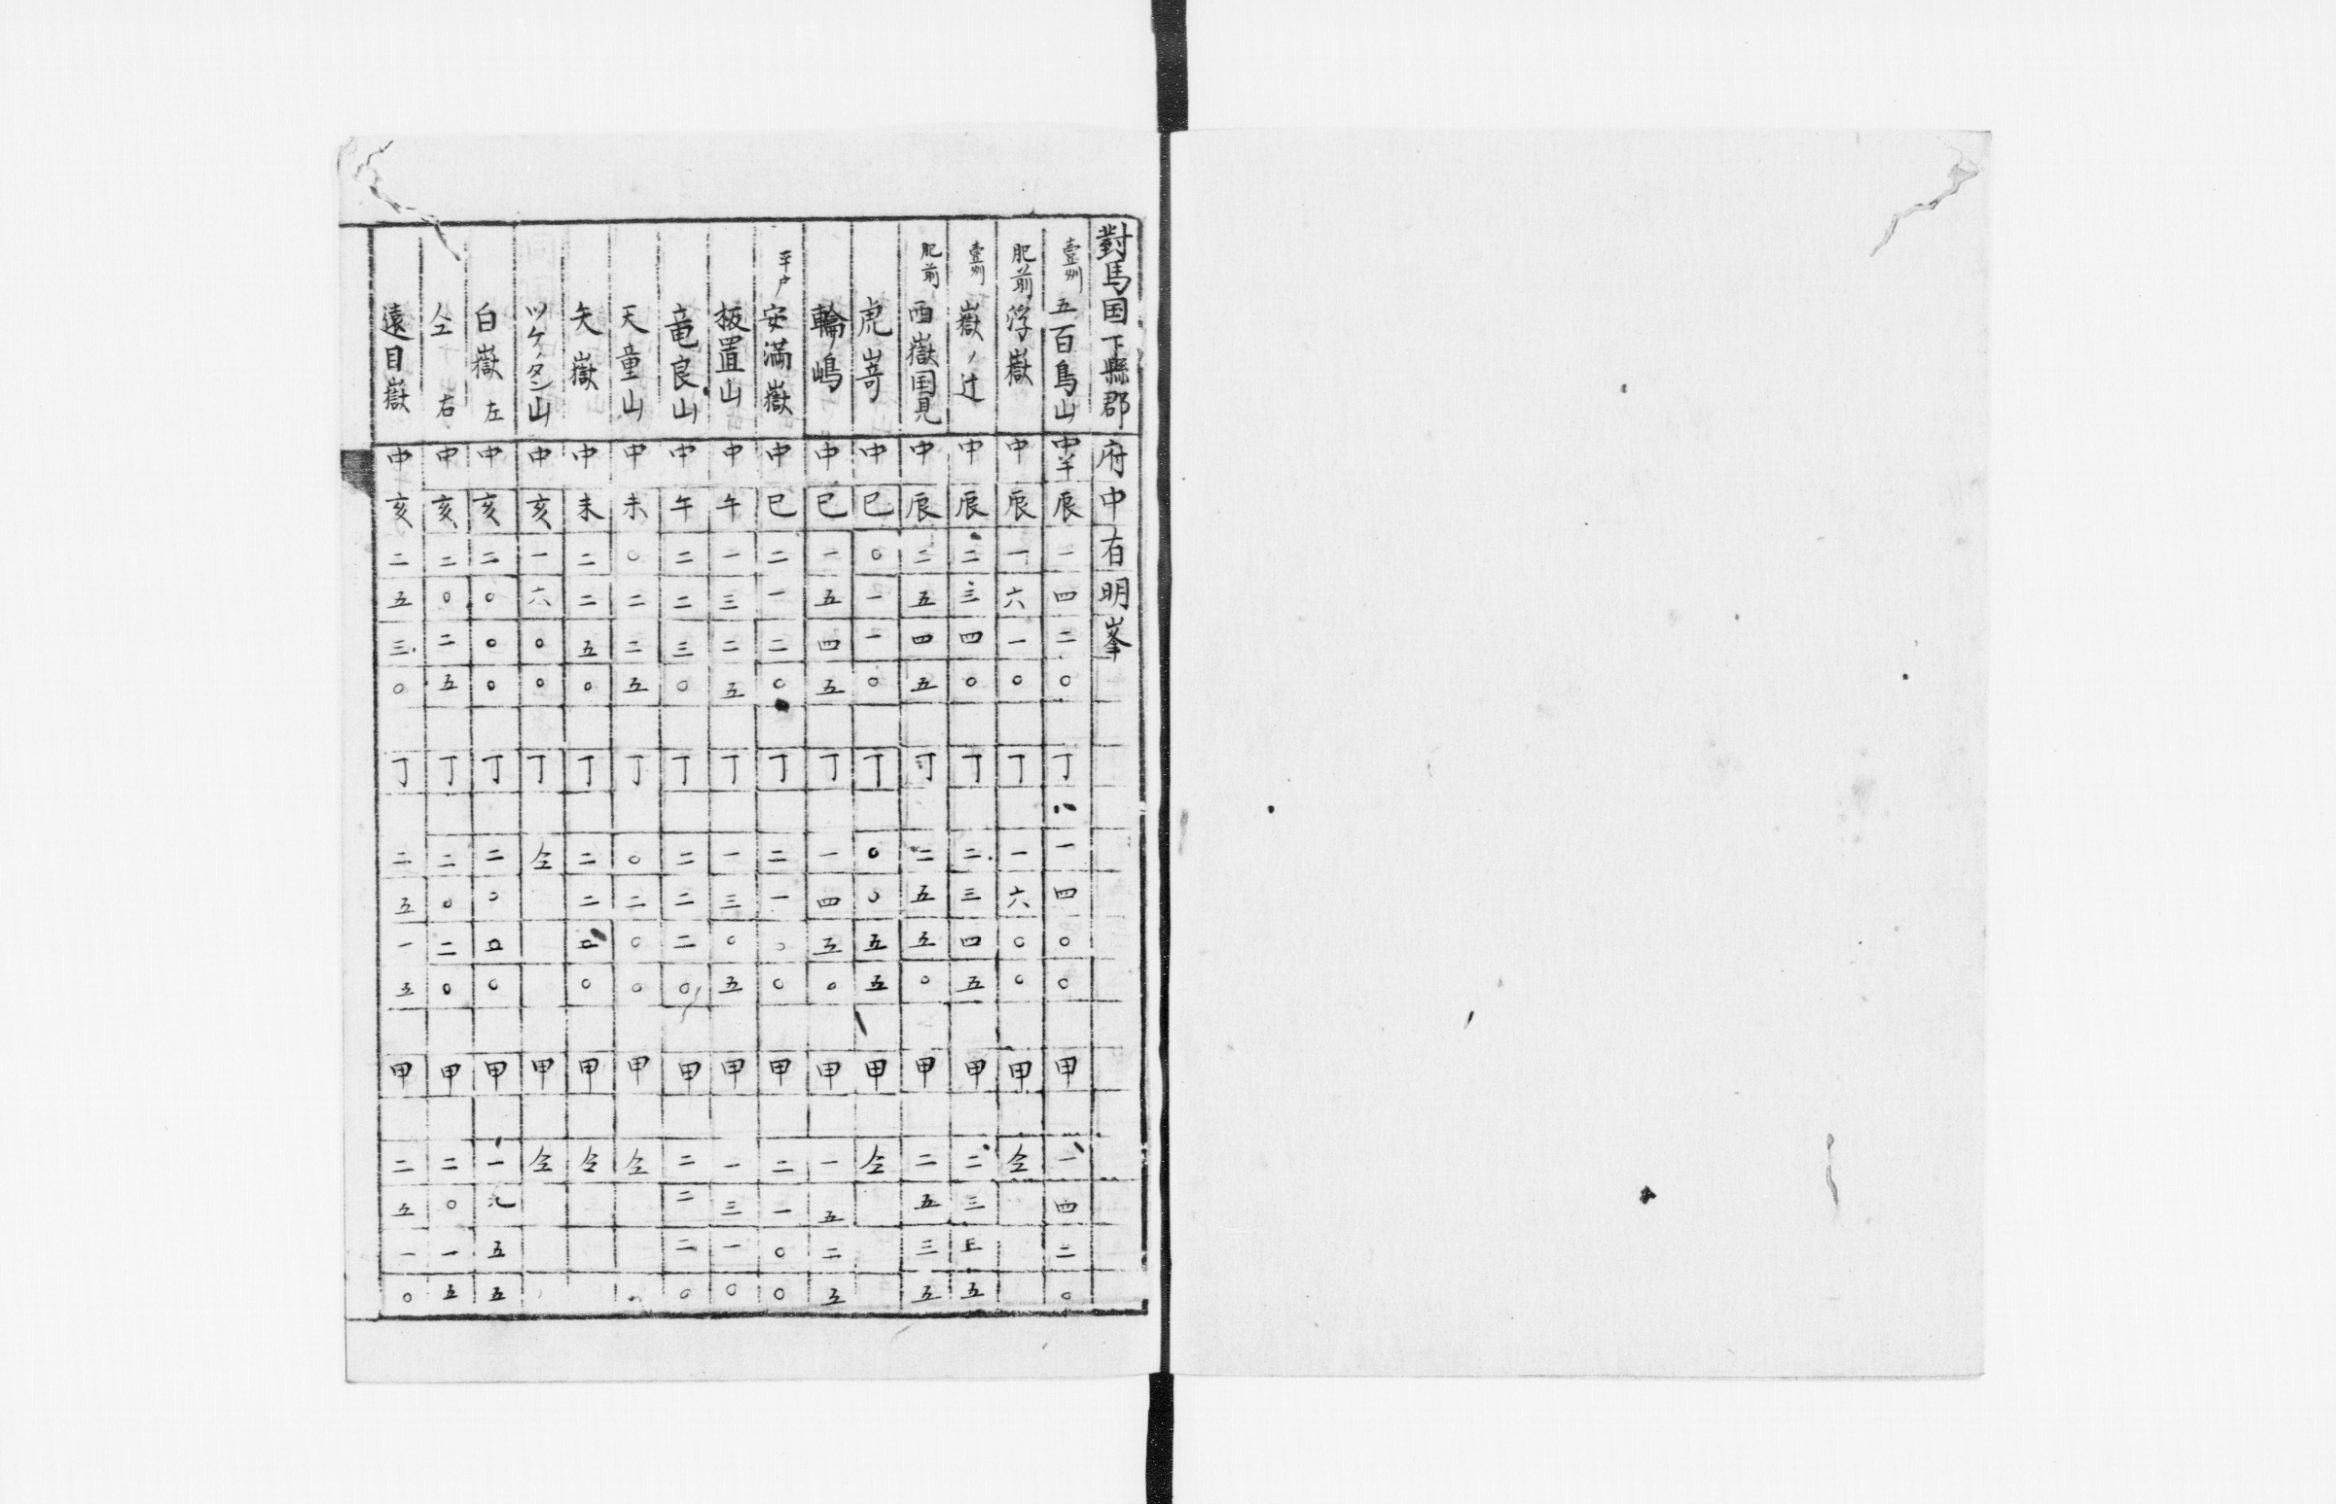 對馬国下縣郡府中有明峯
壹州五百鳥山中半辰一四二〇丁一四〇〇甲一四二〇
肥前浮嶽中辰一六一〇丁一六〇〇甲仝
壹州嶽ノ辻中辰二三四〇丁二三四五甲二三五
肥前西嶽国見中辰二五四五丁二五五〇甲二五三五
虎嵜中巳〇一一〇丁〇〇五五甲仝
輪嶋中巳一五四五丁一四五〇甲一五二五
平戸安満嶽中巳二一二〇丁二一〇〇甲二一〇〇
板置山中午一三二五丁一三〇五甲一三一〇
竜良山中午二二三〇丁二二二〇甲二二二〇
天童山中未〇二二五丁〇二〇〇甲仝
矢嶽中未二二五〇丁二二〇甲仝
ツケノタン山中亥一六〇〇丁仝甲仝
白嶽左中亥二〇〇〇丁二〇〇甲一九五五
仝右中亥二〇二五丁二〇二〇甲二〇一五
遠目嶽中亥二五三〇丁二五一五甲二五一〇